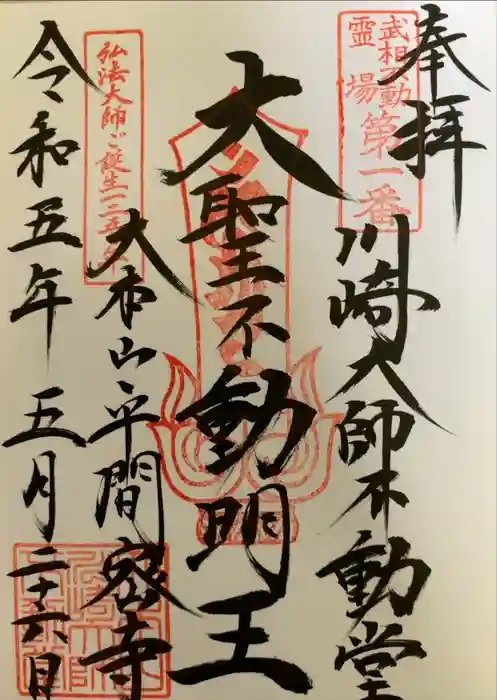 奉拝
武相不動
霊場
第一番
川崎大師不動堂
大聖不動明王
弘法大師ご誕生一二五〇年
大本山平間寺
令和五年五月二十六日